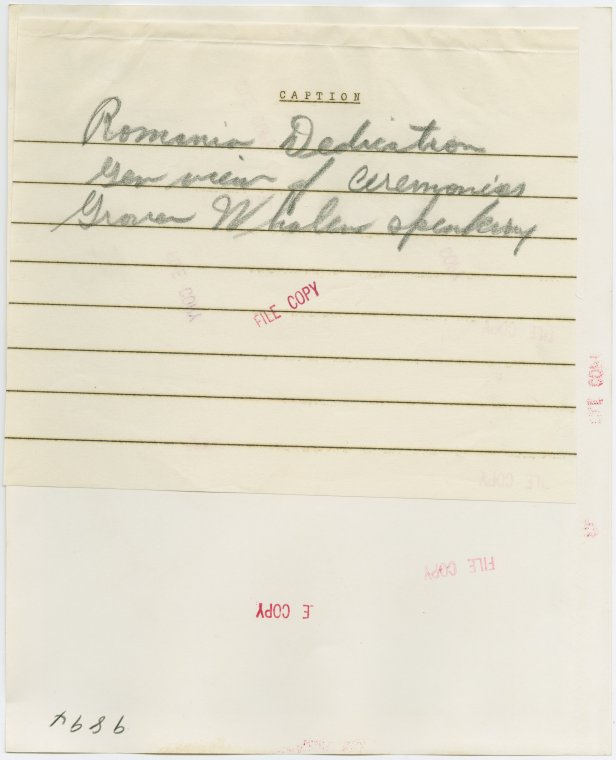 CAPTION
Romania Dedication
Gen view of ceremonies
Grover Whalen speaking
FILE COPY
FILE COPY
E COPY